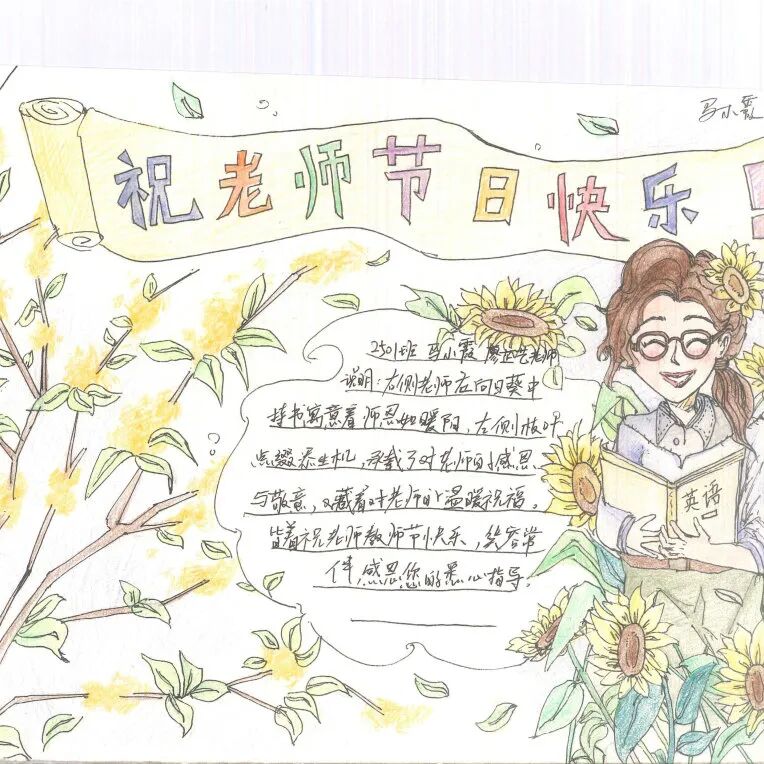 马小霞
祝老师节日快乐!
2501班 马小霞 老师
说明:左侧老师在向日葵中
持书寓意着师恩如暖阳,左侧枝叶
点缀添生机,承载了对老师的感恩
与敬意,又藏着对老师的温暖祝福。
皆着祝老师教师节快乐,笑容常
伴,感恩您的悉心指导。
英语